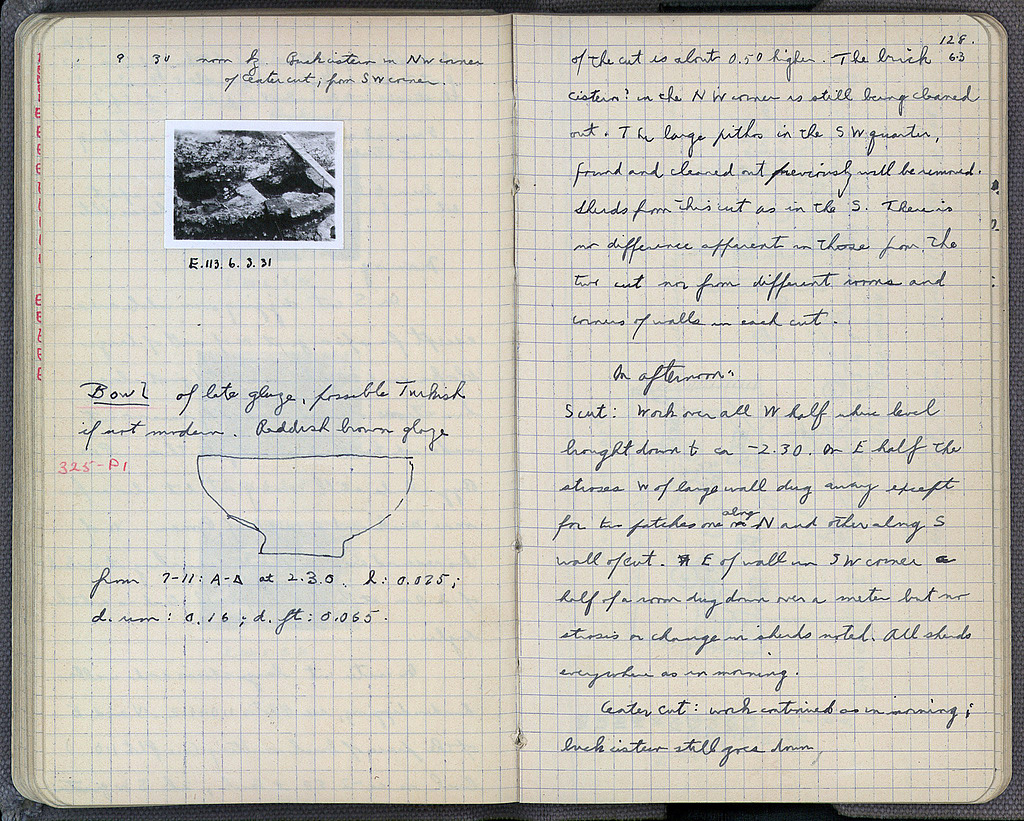 9 30 noon Brick cistern in NW corner
of Center cut; from SW corner.
E.113. 6. 3. 31
Bowl of late glaze, possible Turkish
if not modern. Reddish brown glaze
325-P1
from 7-11: A-Δ at 2.30. h: 0.075;
d. rim: 0.16; d. ft: 0.065.
128.
63
of the cut is about 0.50 higher. The brick
cistern? in the NW corner is still being cleaned
out. The large pithos in the SW quarter,
found and cleaned out previously will be removed.
Sherds from this cut as in the S. There is
no difference apparent in those from the
two cut nor from different rooms and
corners of walls in each cut.
In afternoon:
S cut: Work over all W half where level
brought down to ca -2.30. In E half the
stroses W of large wall dug away except
for two patches one along N and other along S
wall of cut. E of wall in SW corner
half of a room dug down over a meter but no
strosis or change in sherds noted. All sherds
everywhere as in morning.
Center cut: work continued as in morning;
brick cistern still goes down